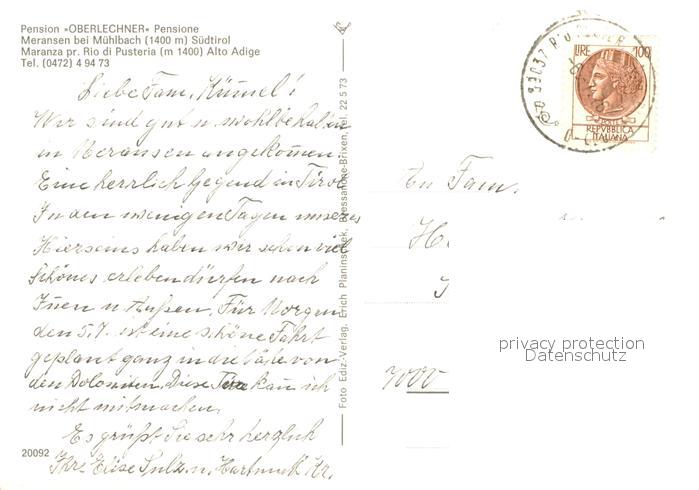 Pension »OBERLECHNER« Pensione
Meransen bei Mühlbach (1400 m) Südtirol
Maranza pr. Rio di Pusteria (m 1400) Alto Adige
Tel. (0472) 4 94 73
Liebe Fam. Kümmel!
Wir sind gut u. wohlbehalten
in Meransen angekommen.
Eine herrlich Gegend in Tirol
In den wenigen Tagen unseres
Hierseins haben wir schon viel
Schönes erleben dürfen nach
Innen u Außen. Für Morgen
den 5.7. ist eine schöne Fahrt
geplant ganz in die Nähe von
den Dolomiten. Diese kan ich
nicht mitmachen.
Es grüßt Sie sehr herzlich
Ihre Elise Sulz u. Hartmuth Kr.
20092
Foto Ediz.-Verlag, Erich Planinschek, Bressanone-Brixen, tel. 22 5 73
39037
LIRE 100
POSTE
REPVBBLICA
ITALIANA
An Fam.
H
7000
privacy protection
Datenschutz